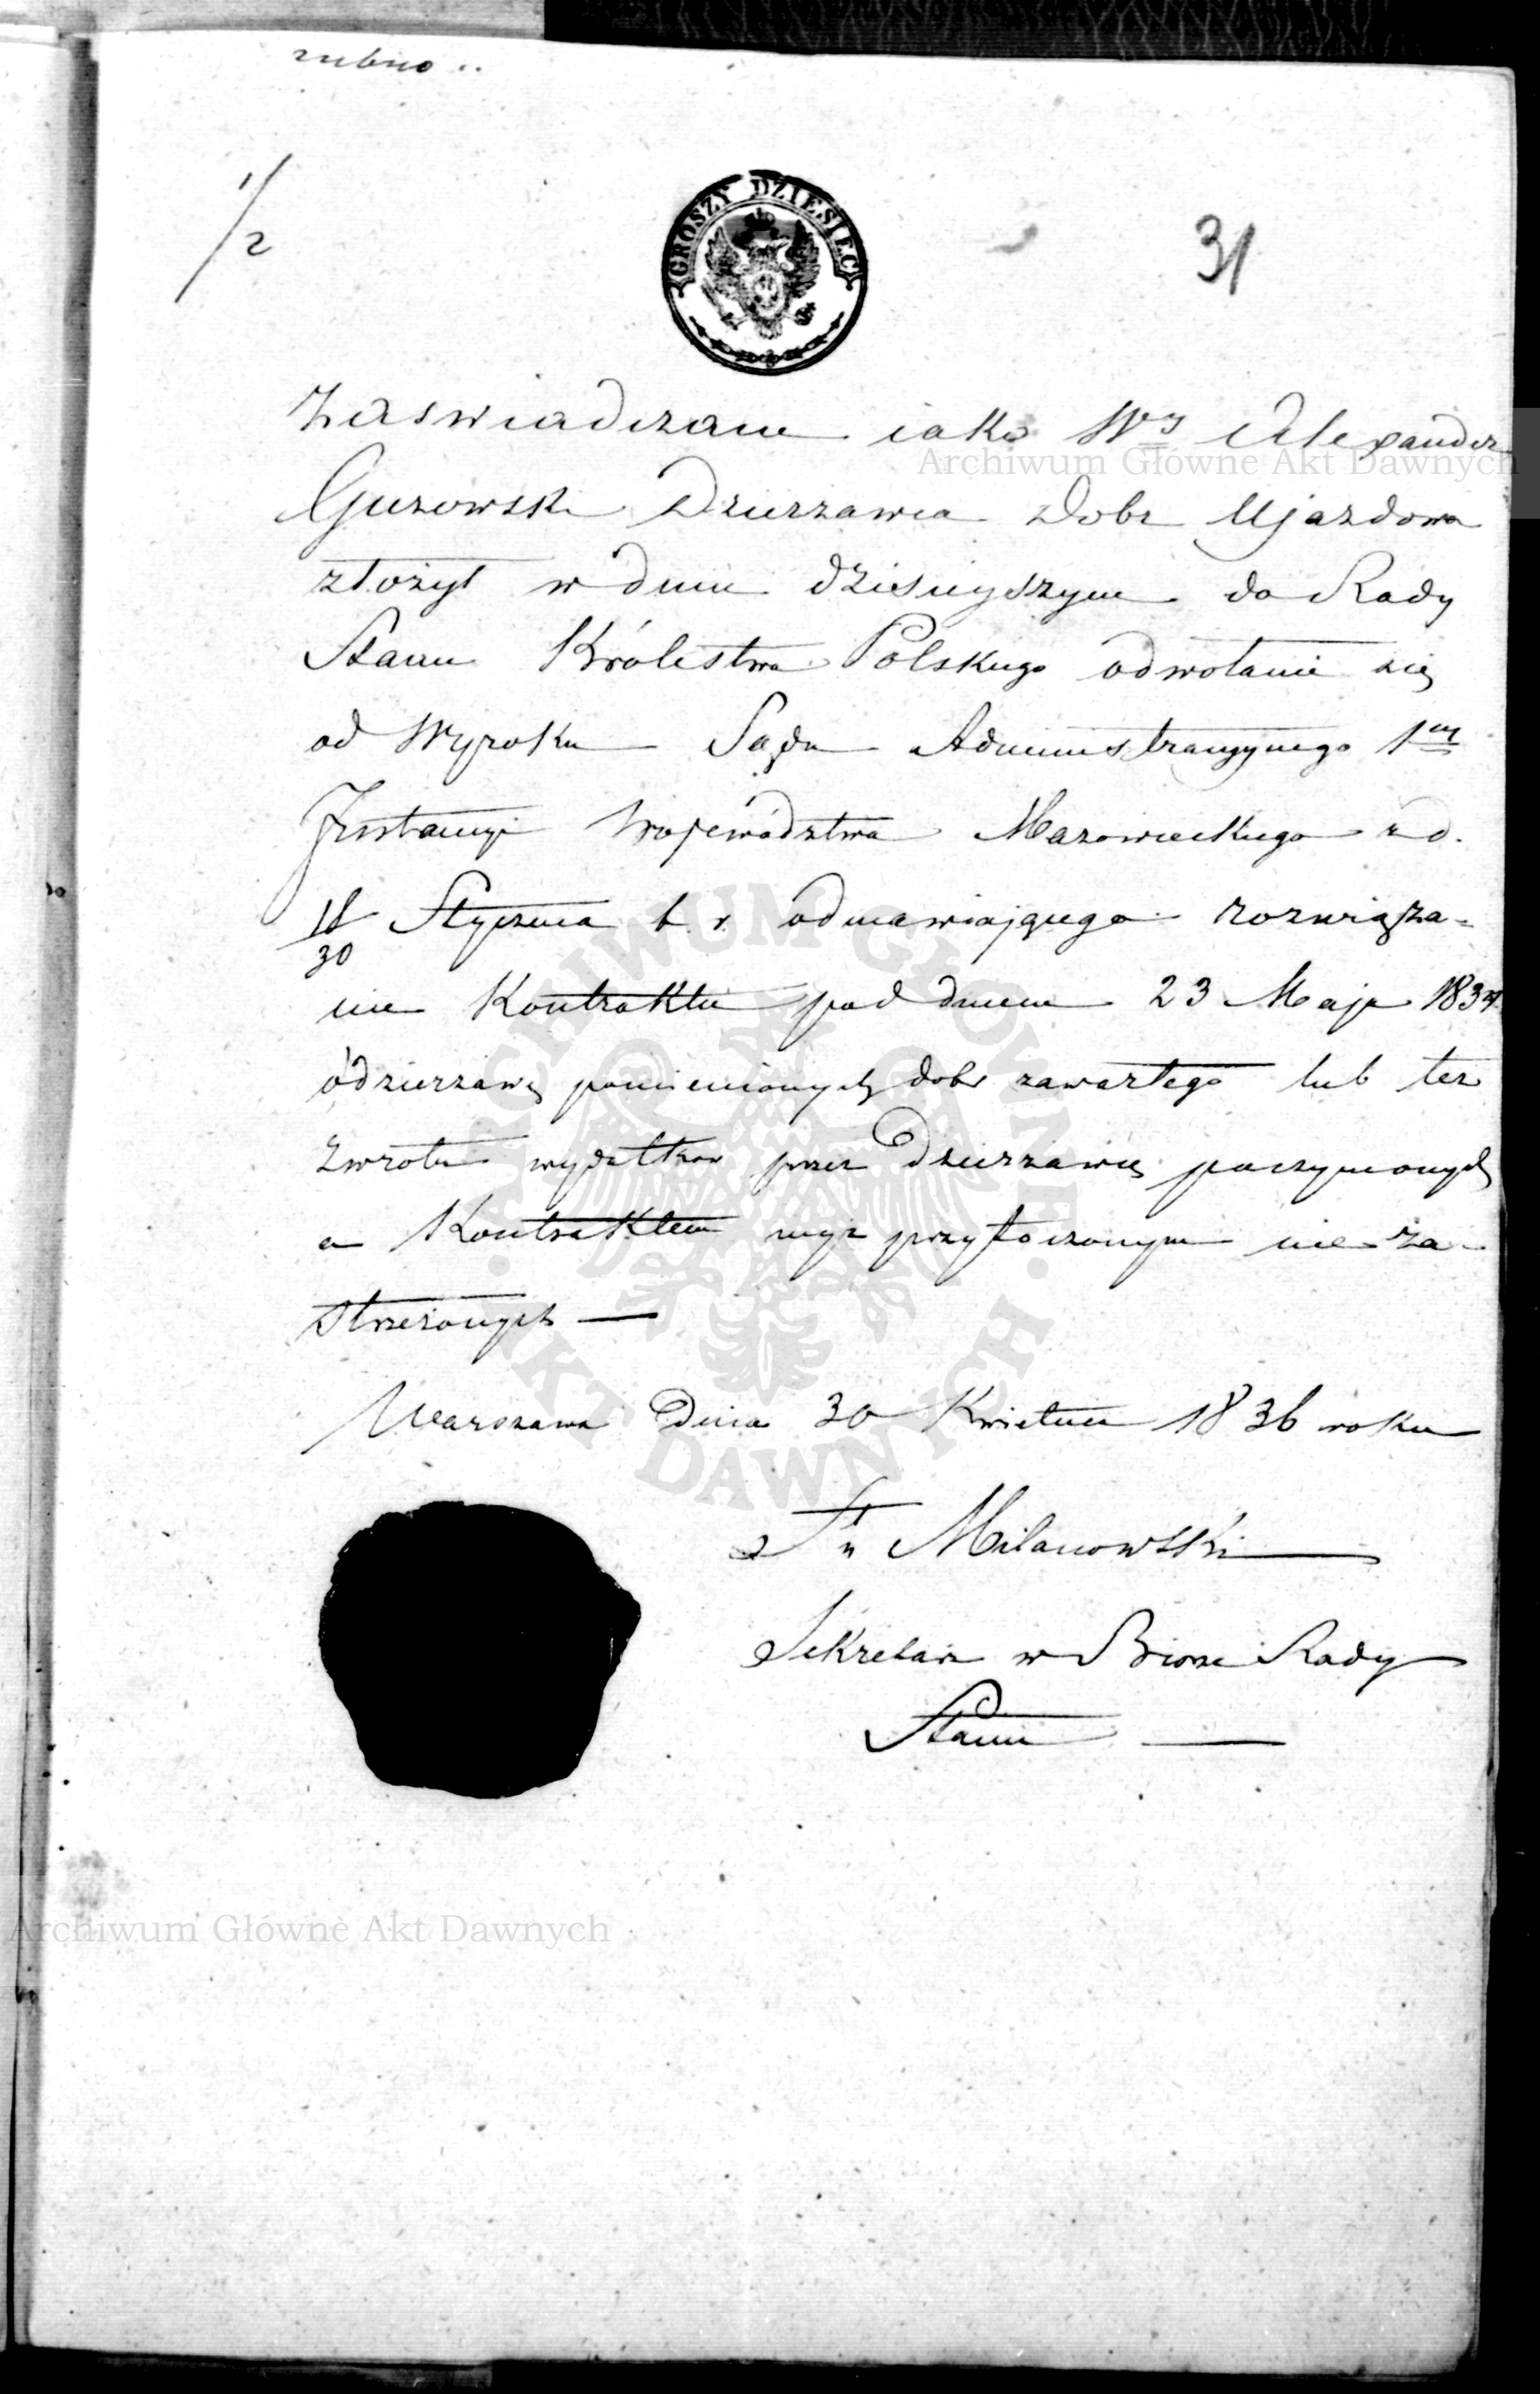 1/2
GROSZY DZIESIĘC
31
Zaświadczam iako Wy Alexander
Guzowski Dzierzawca Dobr Ujazdowa
złożył w dniu dzisieyszym do Rady
Stanu Królestwa Polskiego odwołanie się
od Wyroku Sądu Administracyjnego 1ey
Instancyi Województwa Mazowieckiego z d.
18/30 Stycznia b. r. odmawiającego rozwiąza-
nie Kontraktu pod dniem 23 Maja 1834
o dzierzawę pomienionych dobr zawartego lub tez
zwrotu wydatkow przez Dzierzawcę poczynionych
a Kontraktem wyz przytoczonym nieza-
strzezonych —
Warszawa Dnia 30 Kwietnia 1836 roku
Milanowski
Sekretarz w Biorze Rady
Stanu —
Archiwum Główne Akt Dawnych
ARCHIWUM GŁÓWNE AKT DAWNYCH
Archiwum Główne Akt Dawnych